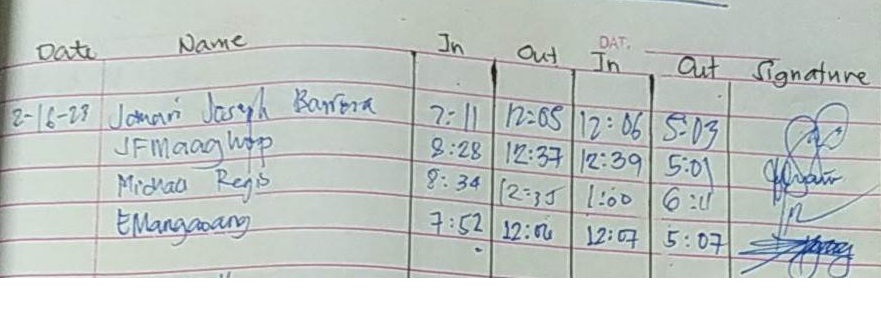 DAT.
Date Name In Out In Out Signature
2-16-23 Jomari Joseph Barrera 7:11 12:05 12:06 5:03
JFMaaghop 8:28 12:37 12:39 5:01
Regis 8:34 12:35 1:00 6:11
EMangaoang 7:52 12:06 12:07 5:07